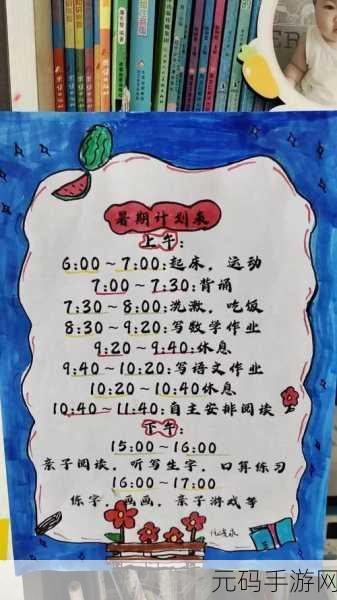 暑期计划表
上午:
6:00～7:00:起床，运动
7:00～7:30:背诵
7:30～8:00:洗漱，吃饭
8:30～9:20:写数学作业
9:20～9:40:休息
9:40～10:20:写语文作业
10:20～10:40休息
10:40～11:40:自主安排阅读
下午:
15:00～16:00
亲子阅读，听写生字，口算练习
16:00～17:00
练字，画画，亲子游戏等
元码手游网